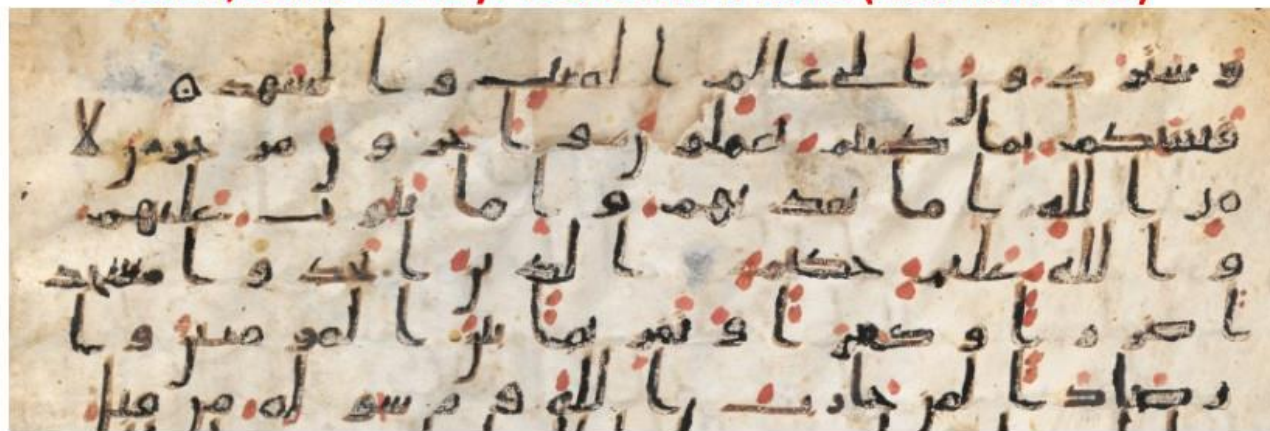 وستردون الى عالم الغيب والشهدة
فينبئكم بما كنتم تعملون واخرون مرجون لا
مر الله اما يعذبهم واما يتوب عليهم
والله عليم حكيم الذين اتخذوا مسجد
ا ضررا وكفرا وتفريقا بين المومنين وا
رصادا لمن حارب الله ورسوله من قبل